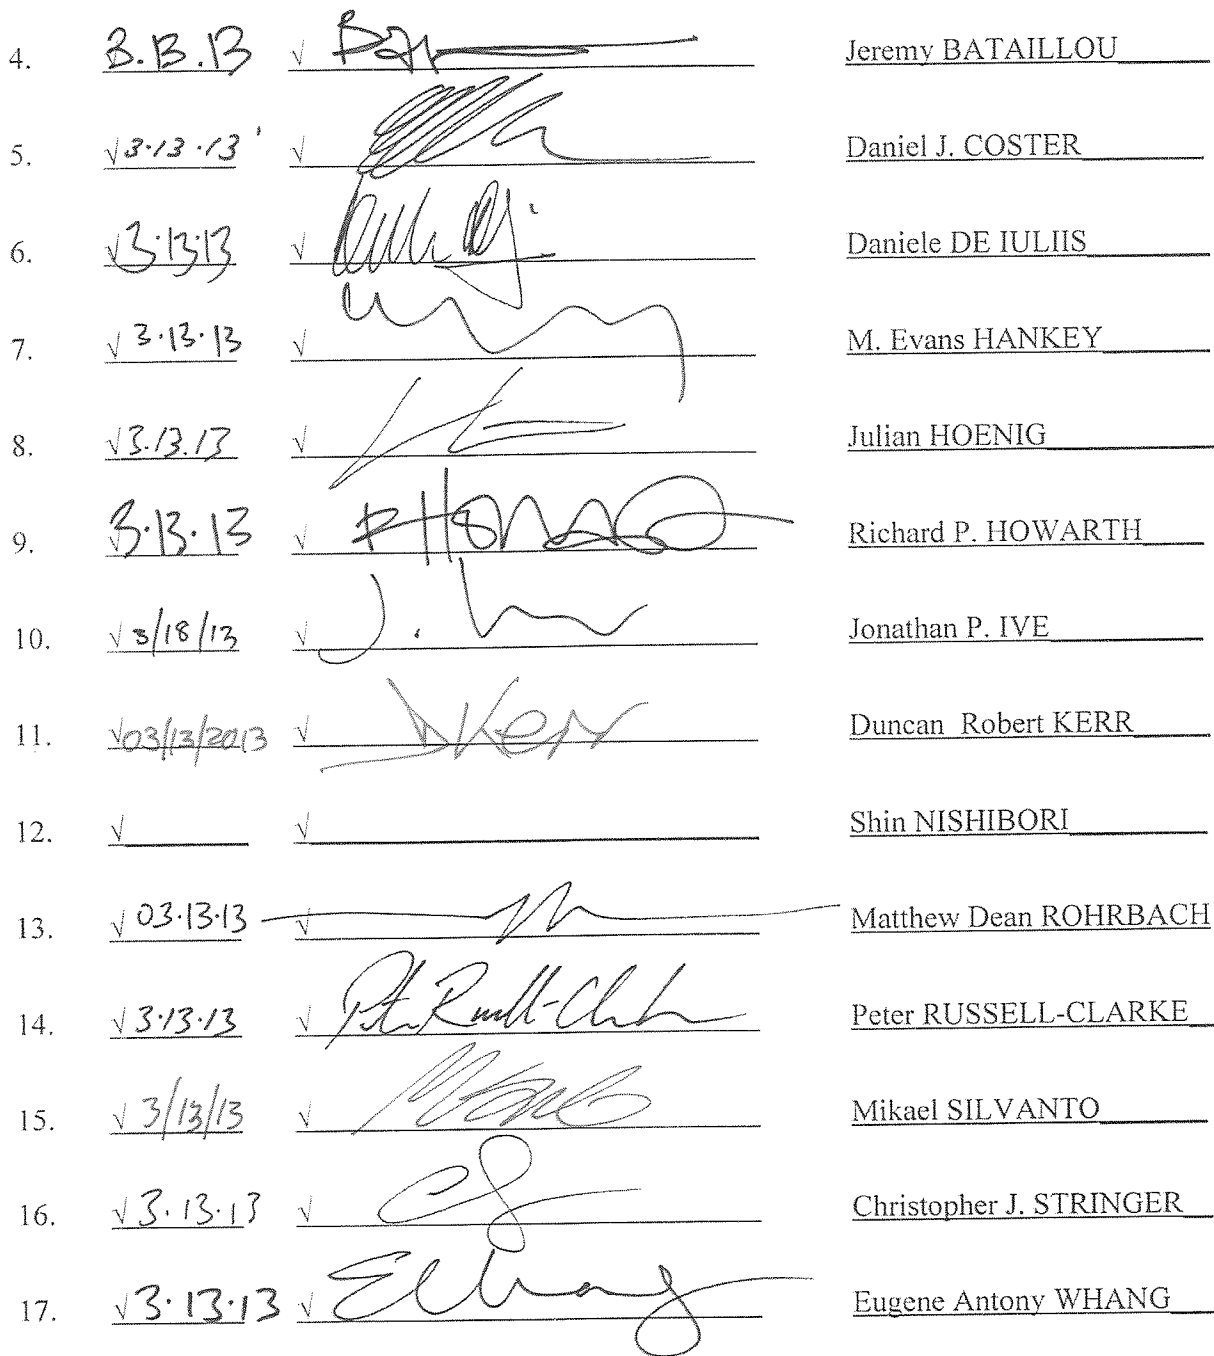 4. 3.13.13 √ Jeremy BATAILLOU
5. √3.13.13 √ Daniel J. COSTER
6. √3.13.13 √ Daniele DE IULIIS
7. √3.13.13 √ M. Evans HANKEY
8. √3.13.13 √ Julian HOENIG
9. 3.13.13 √ Richard P. HOWARTH
10. √3/18/13 √ J. Jonathan P. IVE
11. √03/13/2013 √ DKerr Duncan Robert KERR
12. √ √ Shin NISHIBORI
13. √03.13.13 √ Matthew Dean ROHRBACH
14. √3.13.13 √ Peter RUSSELL-CLARKE
15. √3/13/13 √ Mikael SILVANTO
16. √3.13.13 √ Christopher J. STRINGER
17. √3.13.13 √ EWhang Eugene Antony WHANG